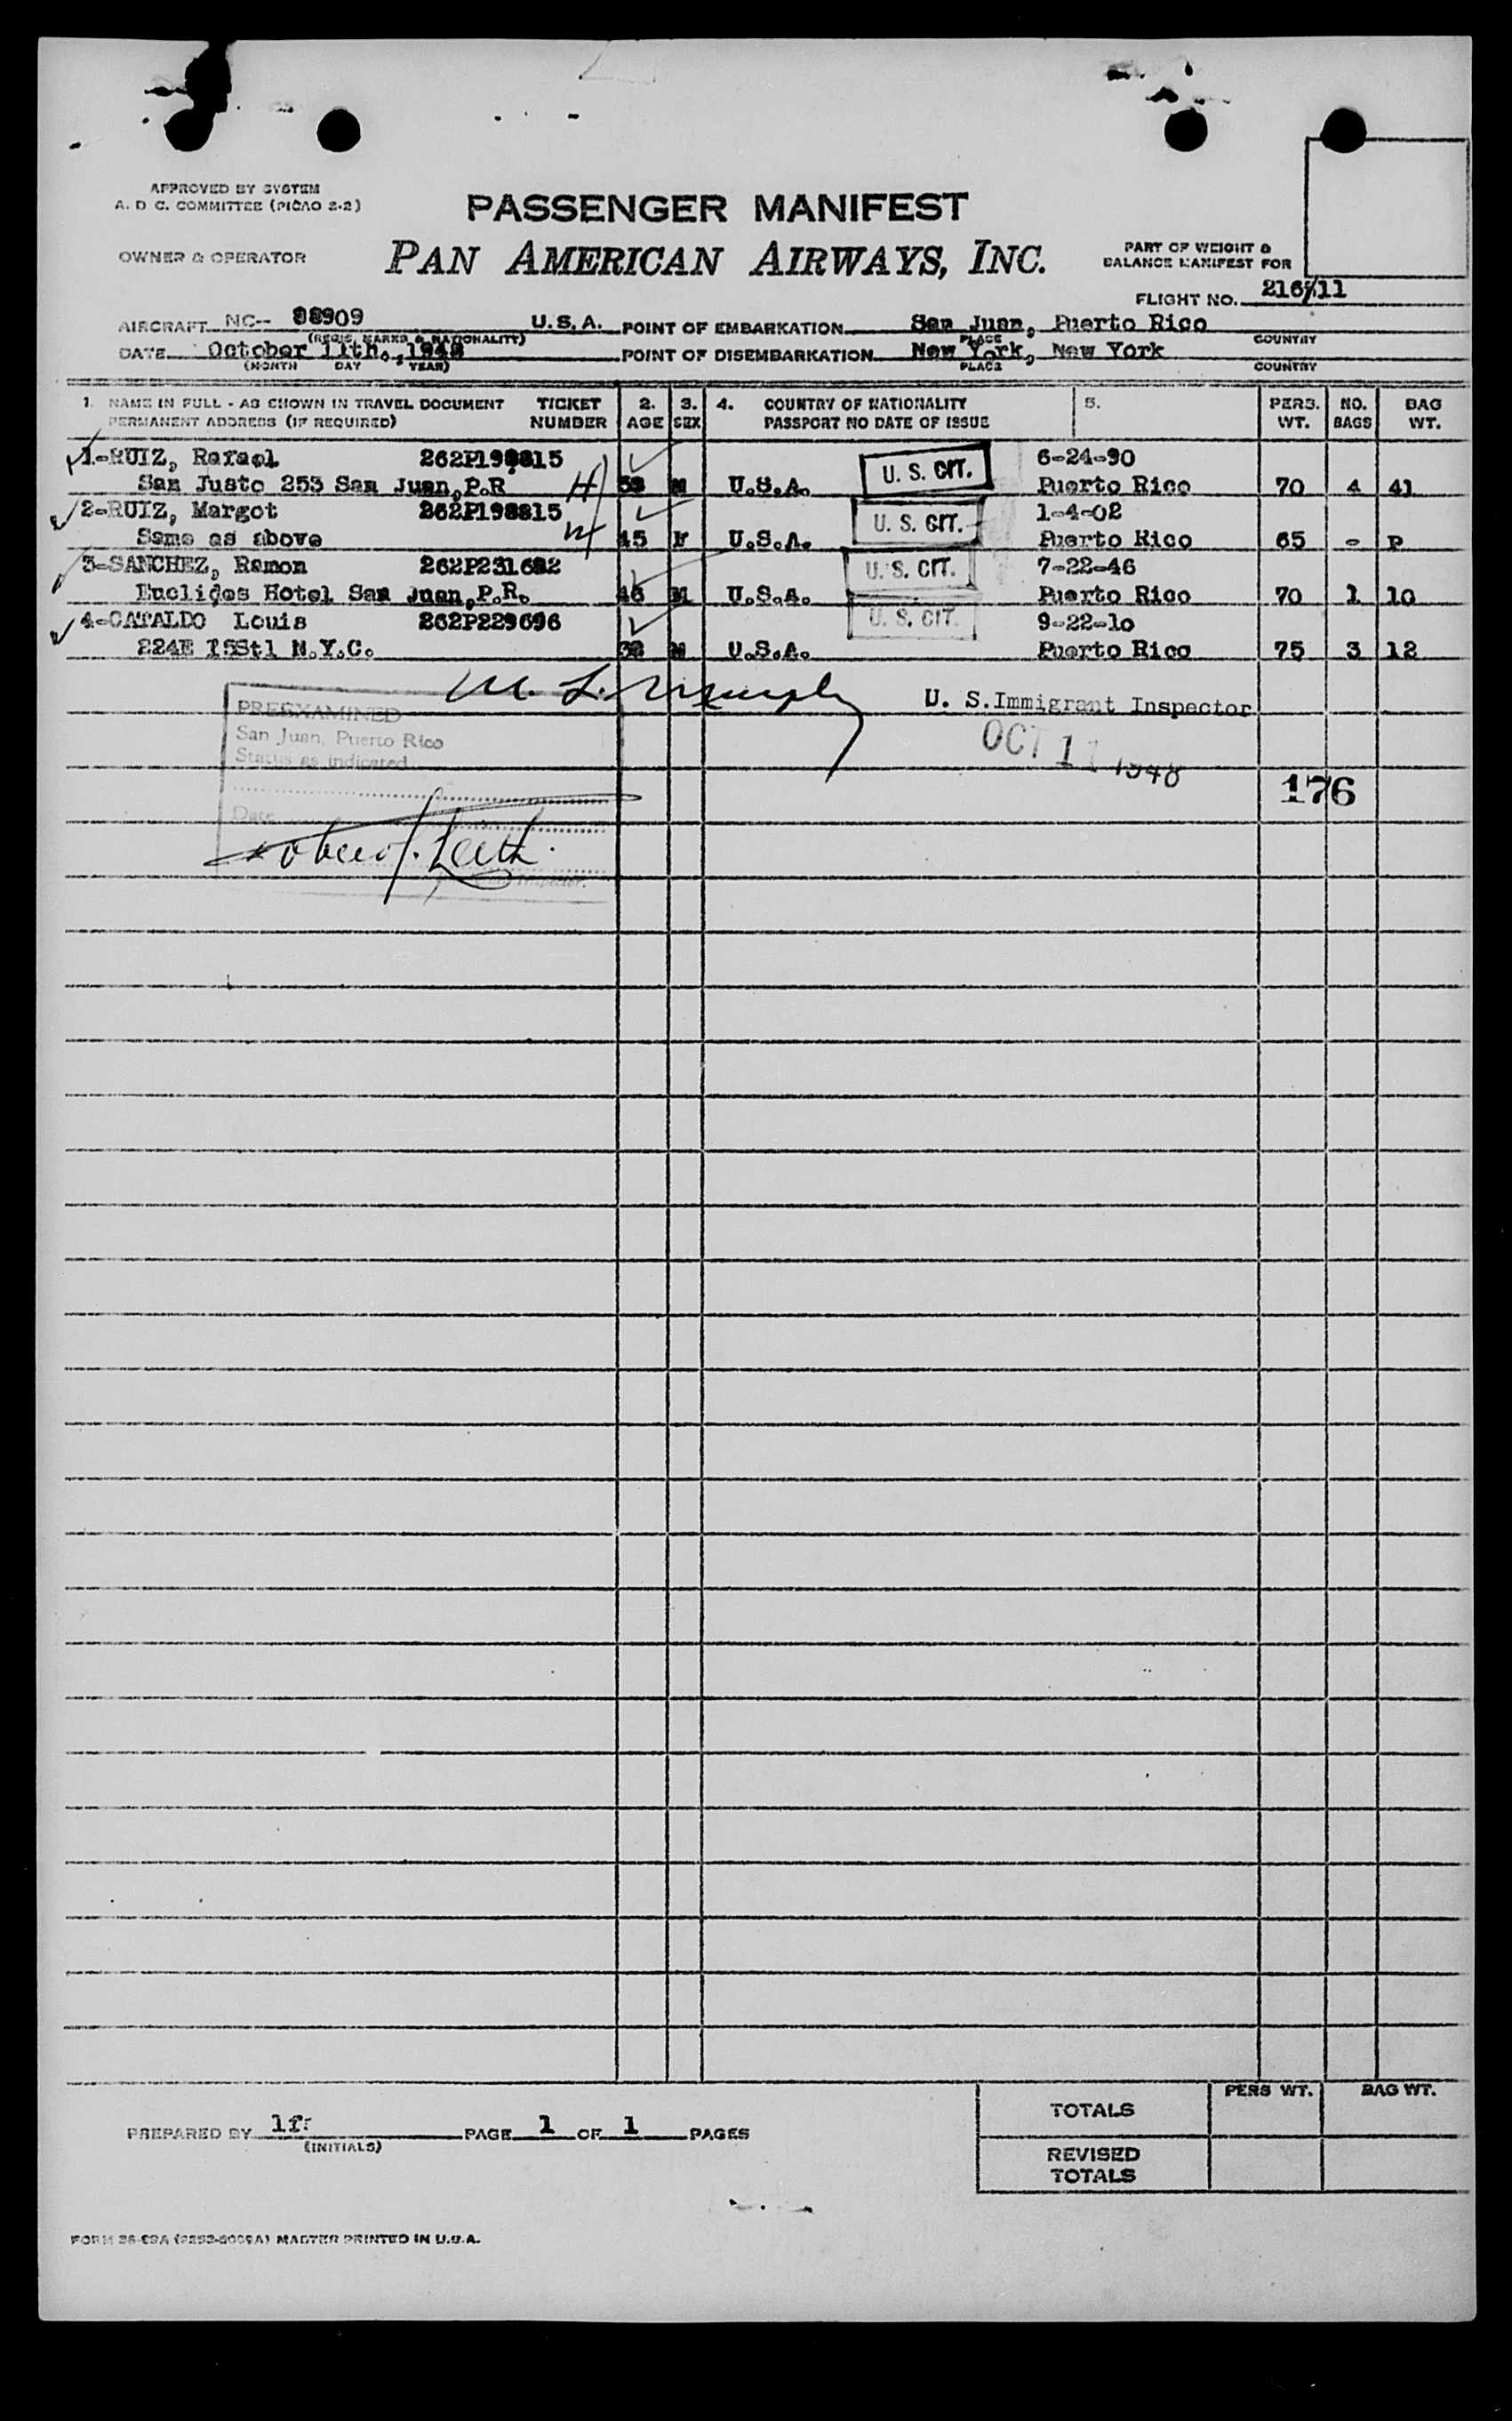 APPROVED BY SYSTEM
A. D C. COMMITTEE (PICAO 2-2)
PASSENGER MANIFEST
OWNER & OPERATOR
PAN AMERICAN AIRWAYS, INC.
PART OF WEIGHT &
BALANCE MANIFEST FOR
FLIGHT NO. 216/11
AIRCRAFT NC-- 88909 U.S.A. POINT OF EMBARKATION San Juan, Puerto Rico
(REGIS. MARKS & NATIONALITY) PLACE COUNTRY
DATE October 11th., 1948 POINT OF DISEMBARKATION New York, New York
(MONTH DAY YEAR) PLACE COUNTRY
1. NAME IN FULL - AS SHOWN IN TRAVEL DOCUMENT TICKET 2. 3. 4. COUNTRY OF NATIONALITY 5. PERS. NO. BAG
PERMANENT ADDRESS (IF REQUIRED) NUMBER AGE SEX PASSPORT NO DATE OF ISSUE WT. BAGS WT.
1-RUIZ, Rafael 262P198815 U. S. CIT. 6-24-90
San Justo 253 San Juan,P.R H M U.S.A. Puerto Rico 70 4 41
2-RUIZ, Margot 262P198815 U. S. CIT. 1-4-02
Same as above W 45 F U.S.A. Puerto Rico 65 - P
3-SANCHEZ, Ramon 262P231682 U. S. CIT. 7-22-46
Euclides Hotel San Juan,P.R. 46 M U.S.A. Puerto Rico 70 1 10
4-CATALDO Louis 262P229696 U. S. CIT. 9-22-10
224E 15St1 N.Y.C. 38 M U.S.A. Puerto Rico 75 3 12
M. L. U. S.Immigrant Inspector
PREEXAMINED
San Juan, Puerto Rico
Status as indicated
OCT 11 1948
176
Date
Inspector.
PREPARED BY PAGE 1 OF 1 PAGES
(INITIALS)
PERS WT. BAG WT.
TOTALS
REVISED
TOTALS
MASTER PRINTED IN U.S.A.